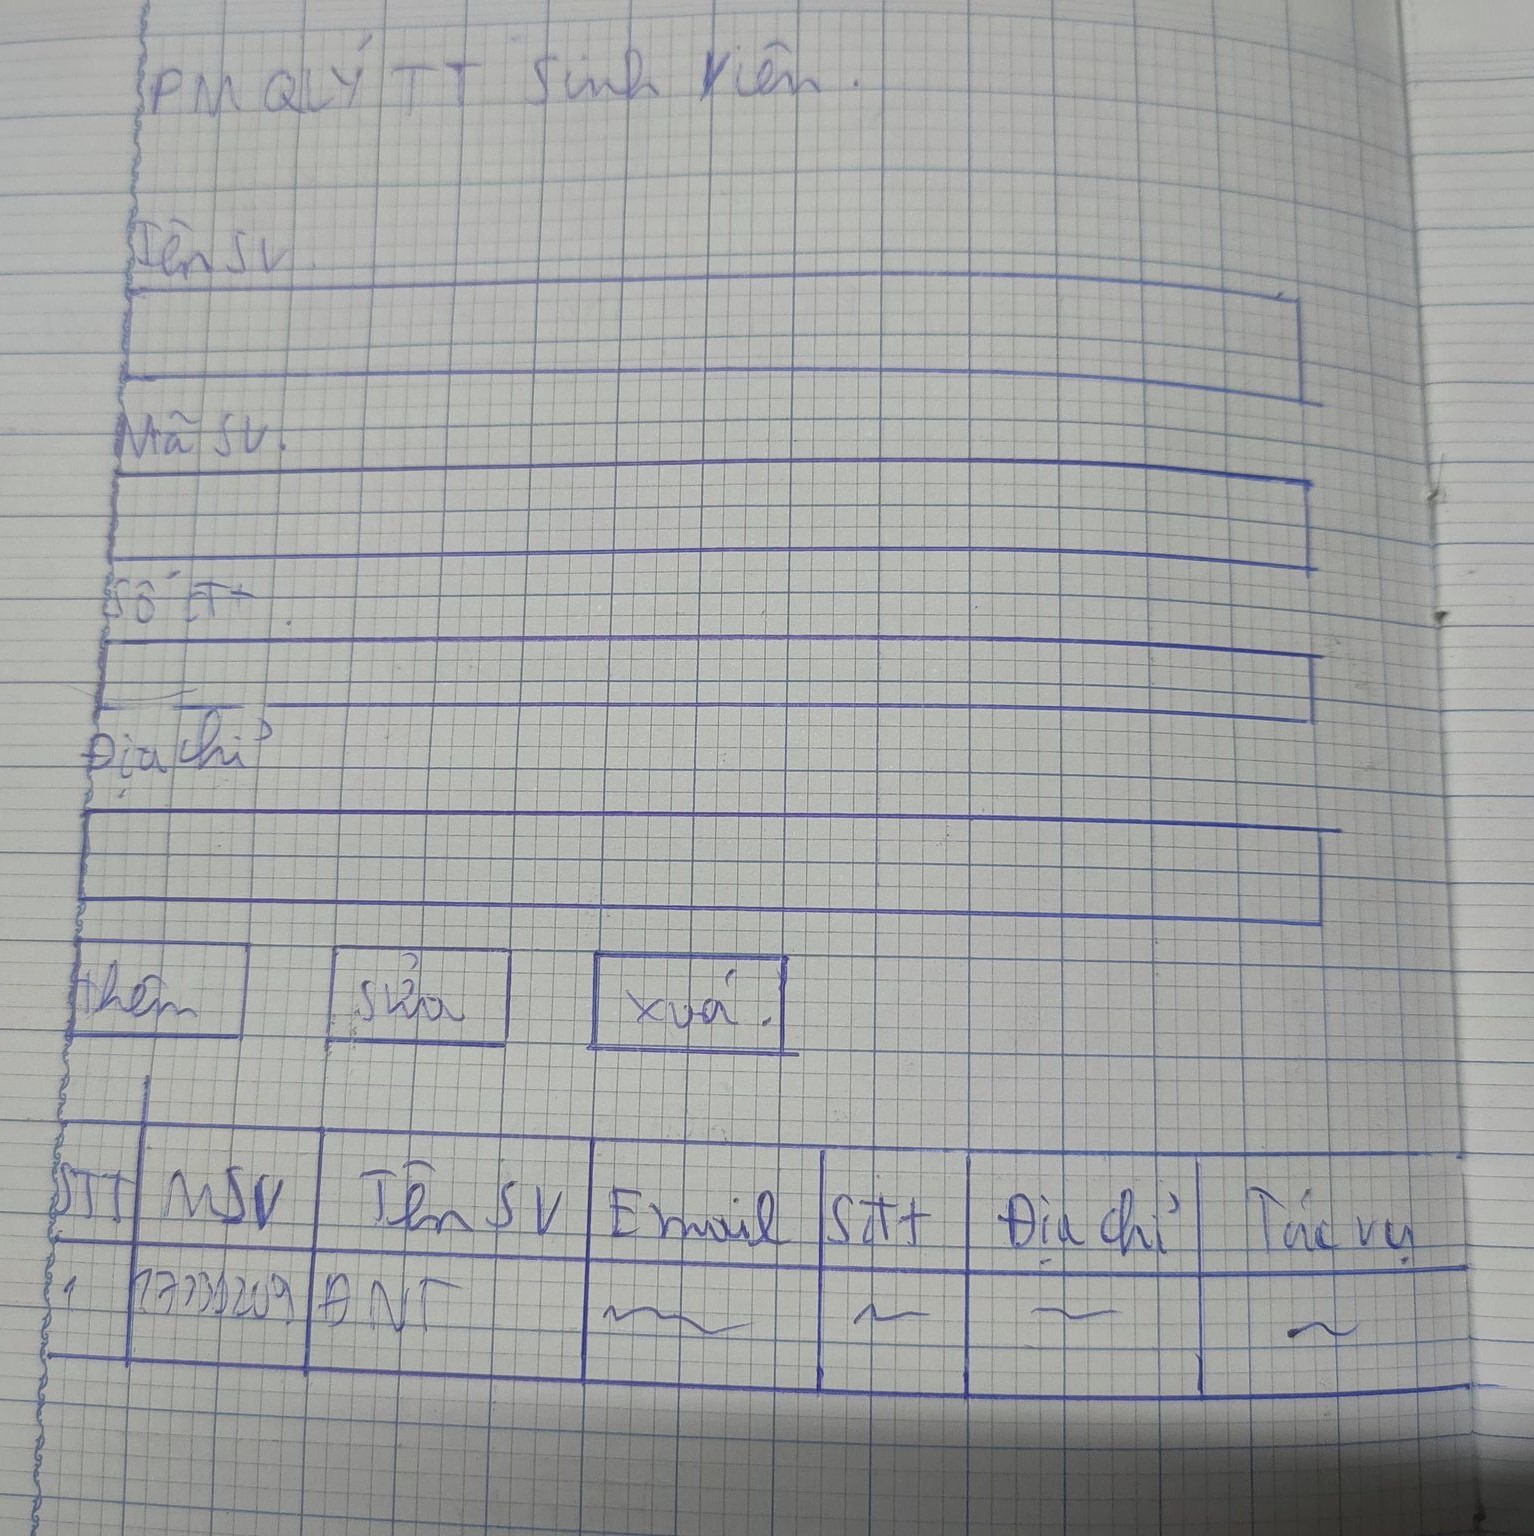 PM QLÝ TT Sinh Viên.
Tên SV.
Mã SV.
Số ĐT
Địa chỉ
thêm sửa xoá.
STT MSV Tên SV Email SĐT Địa chỉ Tác vụ
1 ĐNT